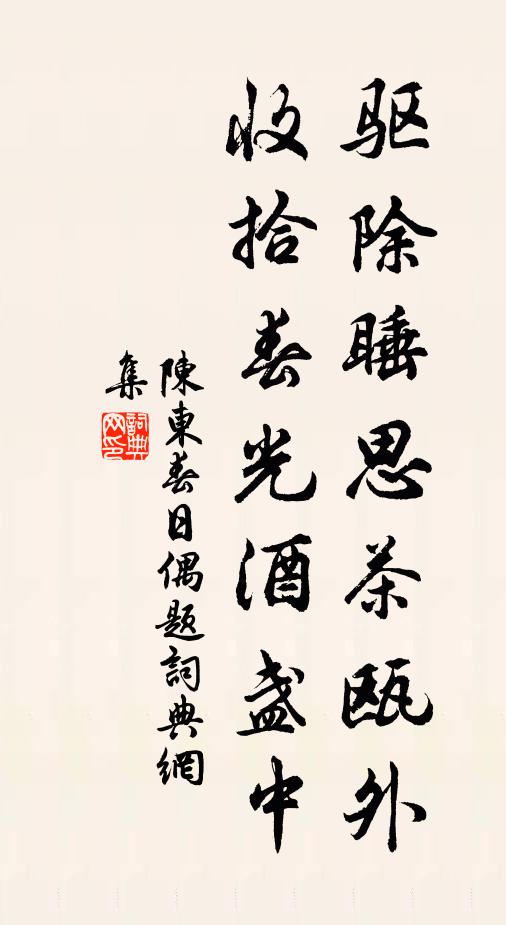 驱除睡思茶瓯外
收拾春光酒盏中
陳東春日偶題詞典網
集
詞典
网印